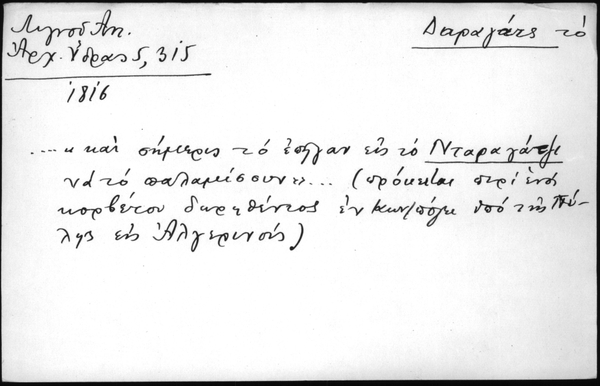 Λιγνού Αντ.
Ἀρχ. Ὕδρας 5, 315
1816
Δαραγάτσι τό
....« καὶ σήμερις τό ἐπῆγαν εἰς τό Νταραγάτζι
νά τό παλαμίσουν»... (πρόκειται περί ἑνός
κορβέτου δωρηθέντος ἐν Κων/πόλει ὑπό τῆς Πύ-
λης εἰς Ἀλγερινούς)